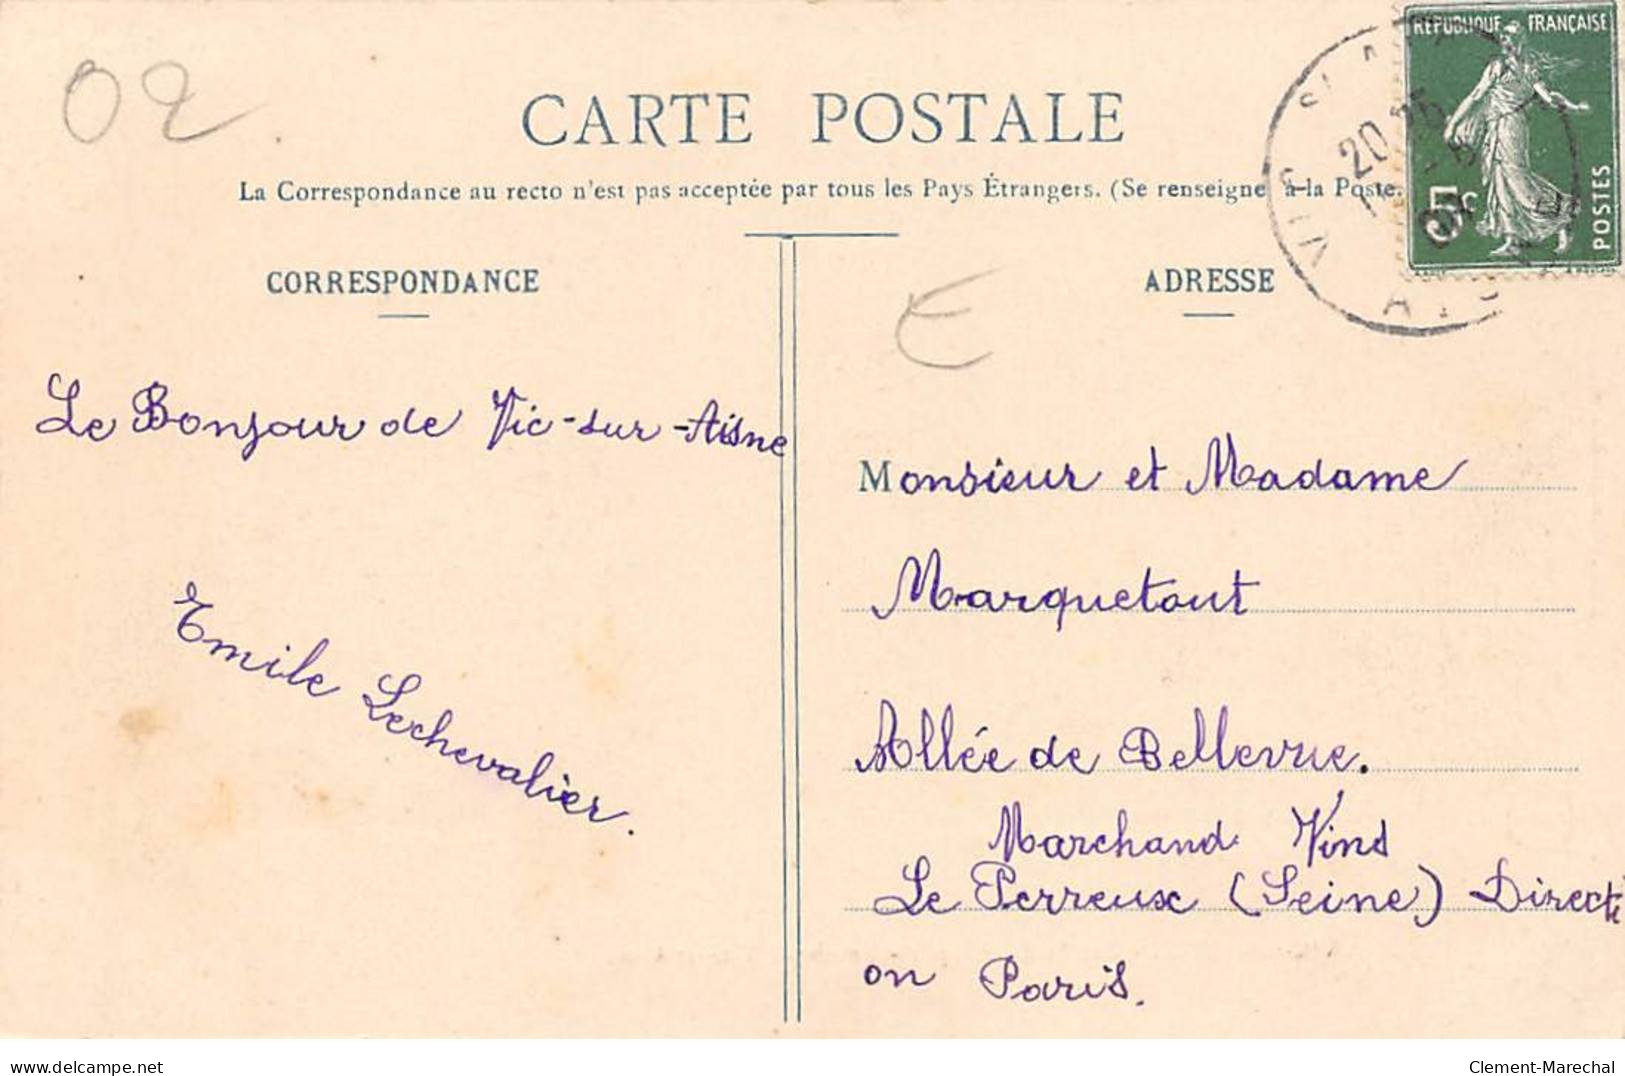 02
CARTE POSTALE
La Correspondance au recto n'est pas acceptée par tous les Pays Étrangers. (Se renseigne à la Poste.
RÉPUBLIQUE FRANÇAISE
5c
POSTES
VIC SUR AISNE
20
CORRESPONDANCE
ADRESSE
E
Le Bonjour de Vic-sur-Aisne
Emile Lechevalier.
Monsieur et Madame
Marquetout
Allée de Bellevue.
Marchand Vins
Le Perreux (Seine) Directi
on Paris.
www.delcampe.net
Clement-Marechal